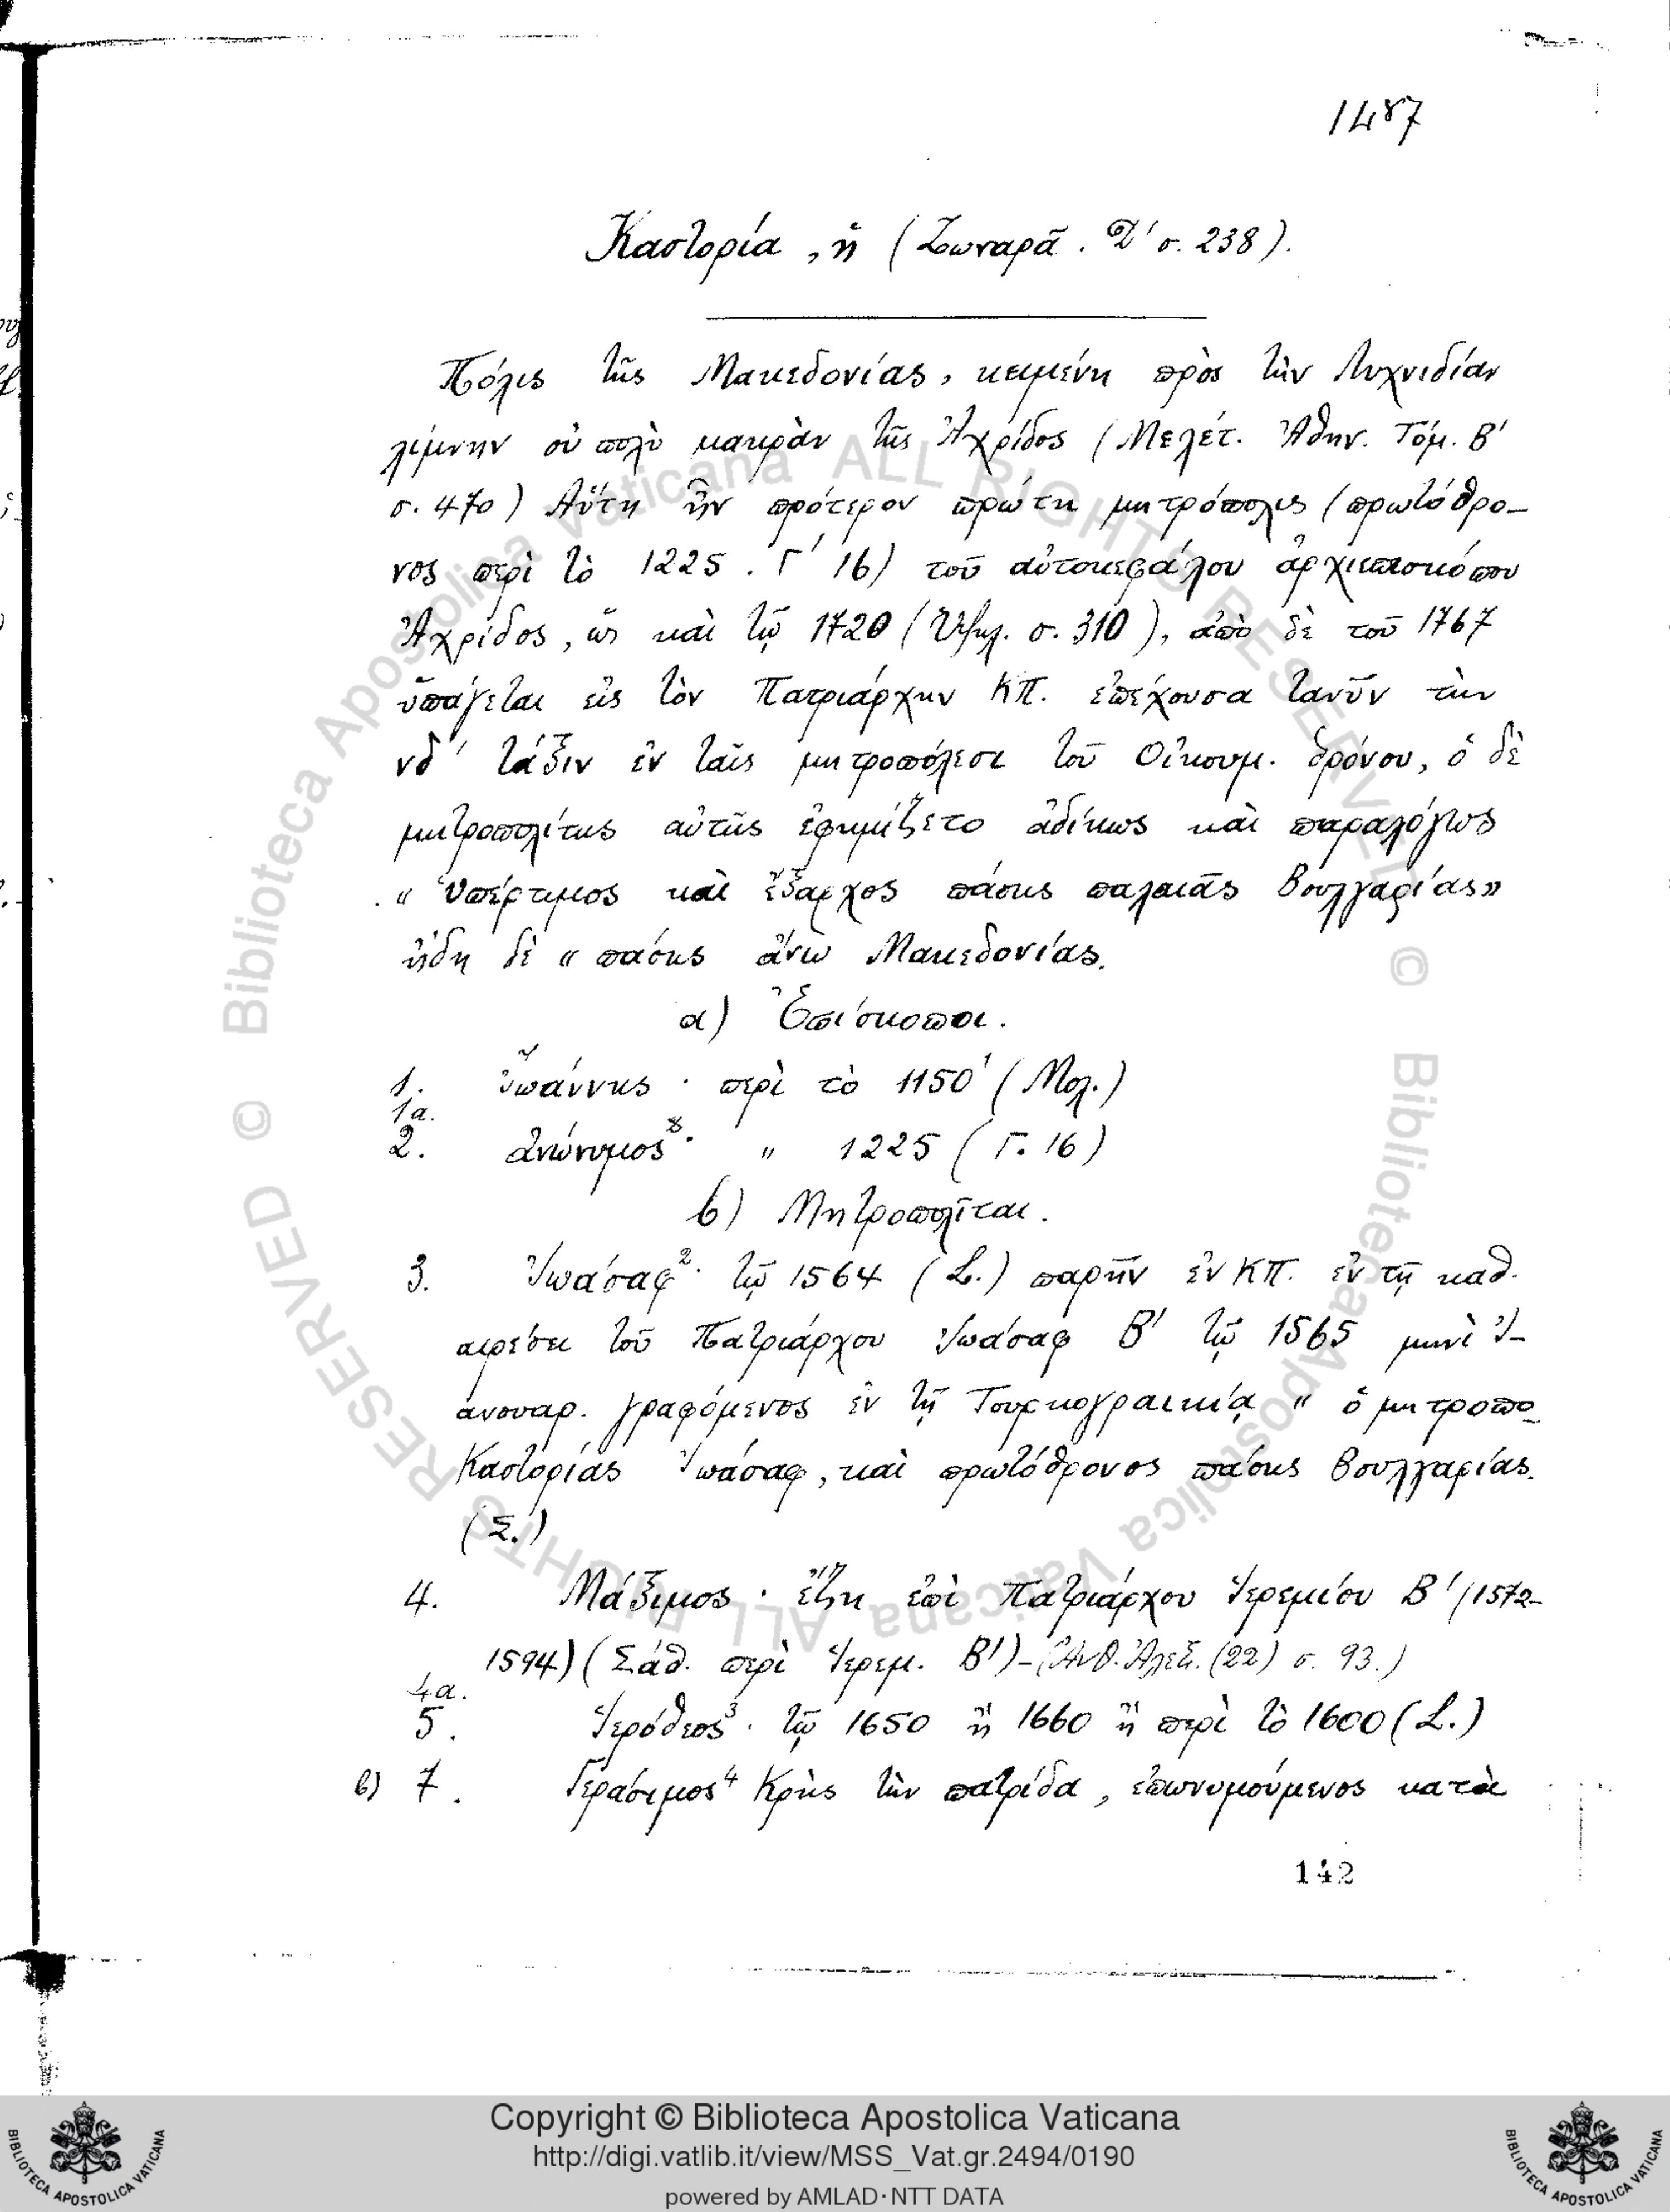 1487
Καστορία, ἡ (Ζωναρᾶ. Δ' σ. 238).
Πόλις τῆς Μακεδονίας, κειμένη πρὸς τὴν Λυχνιδίαν
λίμνην οὐ πολὺ μακρὰν τῆς Ἀχρίδος (Μελέτ. Ἀθην. Τόμ. Β'
σ. 470) Αὕτη ἦν πρότερον πρώτη μητρόπολις (πρωτόθρο-
νος περὶ τὸ 1225. Γ' 16) τοῦ αὐτοκεφάλου ἀρχιεπισκόπου
Ἀχρίδος, ὡς καὶ τῷ 1720 (Ὑψηλ. σ. 310), ἀπὸ δὲ τοῦ 1767
ὑπάγεται εἰς τὸν Πατριάρχην ΚΠ. ἐπέχουσα τανῦν τὴν
νδ' τάξιν ἐν ταῖς μητροπόλεσι τοῦ Οἰκουμ. θρόνου, ὁ δὲ
μητροπολίτης αὐτῆς ἐφημίζετο ἀδίκως καὶ παραλόγως
« Ὑπέρτιμος καὶ ἔξαρχος πάσης παλαιᾶς Βουλγαρίας»
ἤδη δὲ « πάσης ἄνω Μακεδονίας.
α) Ἐπίσκοποι.
1. Ἰωάννης · περὶ τὸ 1150 (Μολ.)
1α.
2. ἀνώνυμος · " 1225 (Γ. 16)
β) Μητροπολῖται.
3. Ἰωάσαφ² · τῷ 1564 (L.) παρῆν ἐν ΚΠ. ἐν τῇ καθ-
αιρέσει τοῦ Πατριάρχου Ἰωάσαφ Β' τῷ 1565 μηνὶ Ἰ-
ανουαρ. γραφόμενος ἐν τῇ Τουρκογραικίᾳ « ὁ μητροπο-
Καστορίας Ἰωάσαφ, καὶ πρωτόθρονος πάσης Βουλγαρίας.
(Σ.)
4. Μάξιμος · ἔζη ἐπὶ Πατριάρχου Ἱερεμίου Β' (1572-
1594) (Σάθ. περὶ Ἱερεμ. Β') - (Ἀνθ. Ἀλεξ. (22) σ. 93.)
4α.
5. Ἱερόθεος³ · τῷ 1650 ἢ 1660 ἢ περὶ τὸ 1600 (L.)
6) 7. Γεράσιμος⁴ Κρὴς τὴν πατρίδα, ἐπωνυμούμενος κατὰ
142
© Biblioteca Apostolica Vaticana ALL RIGHTS RESERVED © Biblioteca Apostolica Vaticana ALL RIGHTS RESERVED
Copyright © Biblioteca Apostolica Vaticana
http://digi.vatlib.it/view/MSS_Vat.gr.2494/0190
powered by AMLAD·NTT DATA
BIBLIOTECA APOSTOLICA VATICANA
BIBLIOTECA APOSTOLICA VATICANA